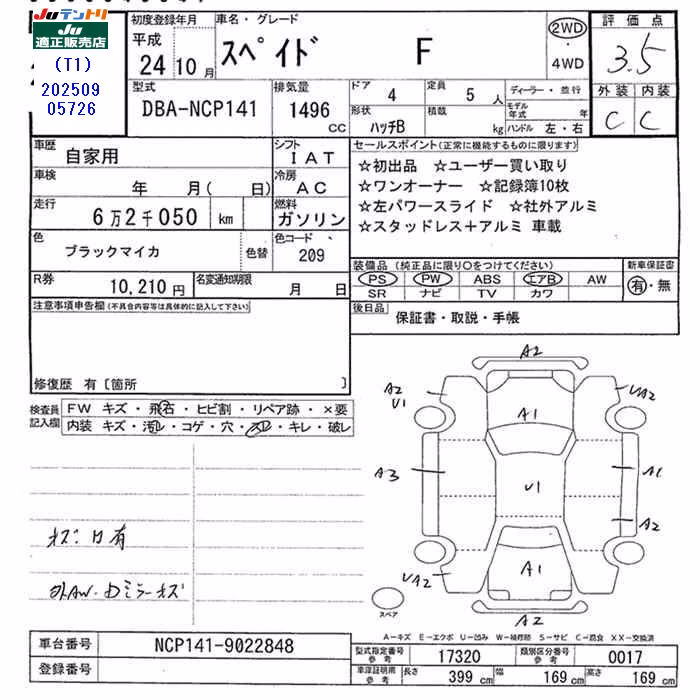 Juテントリ
Ju
適正販売店
(T1)
202509
05726
初度登録年月
平成
24 10 月
車名・グレード
スペイド F
2WD
・
4WD
評価点
3.5
型式
DBA-NCP141
排気量
1496
CC
ドア
4
定員
5 人
ディーラー・並行
モデル年式 年
形状
ハッチB
積載
kg
ハンドル 左・右
外装 内装
C C
車歴
自家用
シフト
IAT
車検
年 月( 日)
冷房
AC
走行
6万2千050 km
燃料
ガソリン
色
ブラックマイカ
色替
色コード
209
R券
10,210 円
名変通知期限
月 日
セールスポイント(正常に機能するものに限ります)
☆初出品 ☆ユーザー買い取り
☆ワンオーナー ☆記録簿10枚
☆左パワースライド ☆社外アルミ
☆スタッドレス+アルミ 車載
装備品 (純正品に限り○をつけてください)
新車保証書
PS PW ABS エアB AW
SR ナビ TV カワ
有・無
後日品
保証書・取説・手帳
注意事項申告欄(不具合内容等は具体的に記入して下さい)
修復歴 有〔箇所 〕
検査員
記入欄
FW キズ・飛石・ヒビ割・リペア跡・×要
内装 キズ・汚レ・コゲ・穴・スレ・キレ・破レ
A2
A2
U1
UA2
A1
A3
U1
A1
A2
UA2
A1
A2
スペア
A-キズ E-エクボ U-凹み W-補修跡 S-サビ C-腐食 XX-交換済
車台番号
NCP141-9022848
登録番号
型式指定番号
参考
17320
類別区分番号
参考
0017
車庫証明用
参考
長さ 399 cm 幅 169 cm 高さ 169 cm